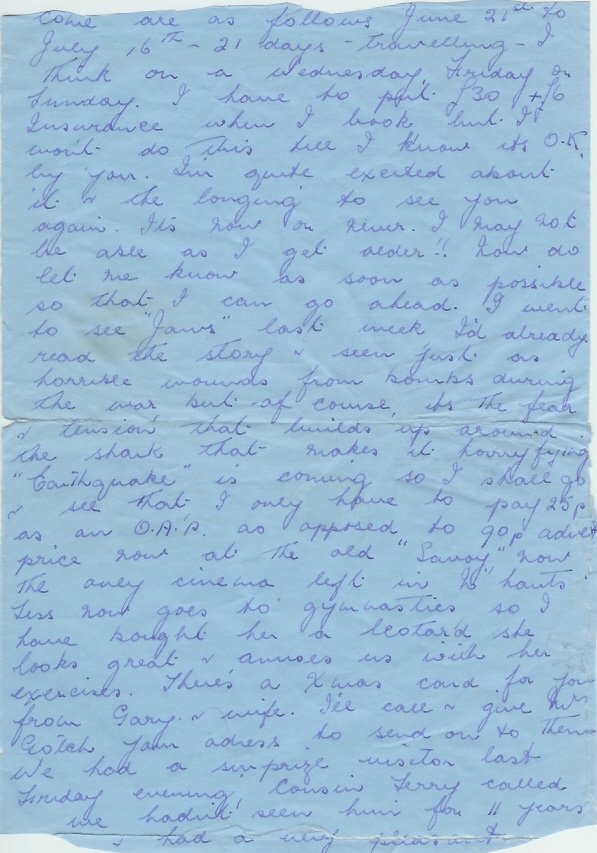 come are as follows June 21st to
July 16th - 21 days - travelling - I
think on a Wednesday, Friday or
Sunday. I have to put £30 + £6
Insurance when I book but I
won't do this till I know its O.K.
by you. I'm quite excited about
it & the longing to see you
again. It's now or never. I may not
be able as I get older!! Now do
let me know as soon as possible
so that I can go ahead. I went
to see "Jaws" last week I'd already
read the story & seen just as
horrible wounds from bombs during
the war but of course, its the fear
& tension that builds up around
the shark that makes it horryfying
"Earthquake" is coming so I shall go
& see that I only have to pay 25p
as an O.A.P. as opposed to 90p advet
price now at the old "Savoy" now
the only cinema left in hants
Tess now goes to gymnastics so I
have bought her a leotard she
looks great & amuses us with her
exercises. There's a Xmas card for you
from Gary & wife. I'll call & give Mrs
Gotch your adress to send on to them
We had a surprize visitor last
Friday evening, Cousin Terry called
we hadn't seen him for 11 years
& had a very pleasant